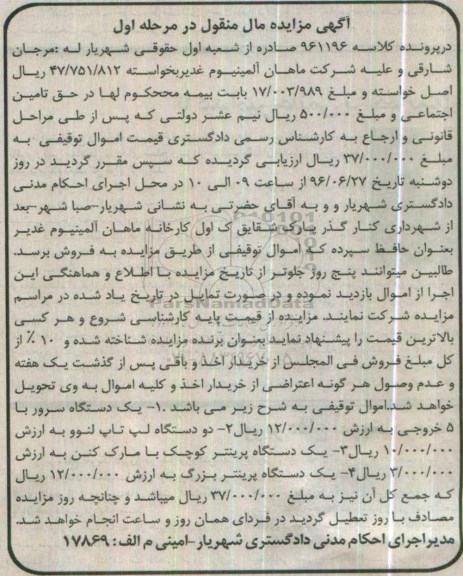 آگهی مزایده مال منقول در مرحله اول
درپرونده کلاسه ۹۶۱۱۹۶ صادره از شعبه اول حقوقی شهریار له :مرجان
شارقی و علیه شرکت ماهان آلمینیوم غدیربخواسته ۴۷/۷۵۱/۸۱۲ ریال
اصل خواسته و مبلغ ۱۷/۰۰۳/۹۸۹ بابت بیمه محکوم لها در حق تامین
اجتماعی و مبلغ ۵۰۰/۰۰۰ ریال نیم عشر دولتی که پس از طی مراحل
قانونی و ارجاع به کارشناس رسمی دادگستری قیمت اموال توقیفی به
مبلغ ۳۷/۰۰۰/۰۰۰ ریال ارزیابی گردیده که سپس مقرر گردید در روز
دوشنبه تاریخ ۹۶/۰۶/۲۷ از ساعت ۰۹ الی ۱۰ در محل اجرای احکام مدنی
دادگستری شهریار و و به آقای حضرتی به نشانی شهریار–صبا شهر–بعد
از شهرداری کنار گذر پارک شقایق ک اول کارخانه ماهان آلمینیوم غدیر
بعنوان حافظ سپرده که اموال توقیفی از طریق مزایده به فروش برسد.
طالبین میتوانند پنج روز جلوتر از تاریخ مزایده با اطلاع و هماهنگی این
اجرا از اموال بازدید نموده و در صورت تمایل در تاریخ یاد شده در مراسم
مزایده شرکت نمایند. مزایده از قیمت پایه کارشناسی شروع و هر کسی
بالاترین قیمت را پیشنهاد نماید بعنوان برنده مزایده شناخته شده و ۱۰ ٪ از
کل مبلغ فروش فی المجلس از خریدار اخذ و باقی پس از گذشت یک هفته
و عدم وصول هر گونه اعتراضی از خریدار اخذ و کلیه اموال به وی تحویل
خواهد شد.اموال توقیفی به شرح زیر می باشد .۱- یک دستگاه سرور با
۵ خروجی به ارزش ۱۲/۰۰۰/۰۰۰ ریال۲- دو دستگاه لپ تاپ لنوو به ارزش
۱۰/۰۰۰/۰۰۰ ریال۳- یک دستگاه پرینتر کوچک با مارک کنن به ارزش
۳/۰۰۰/۰۰۰ ریال۴- یک دستگاه پرینتر بزرگ به ارزش ۱۲/۰۰۰/۰۰۰ ریال
که جمع کل آن نیز به مبلغ ۳۷/۰۰۰/۰۰۰ ریال میباشد و چنانچه روز مزایده
مصادف با روز تعطیل گردید در فردای همان روز و ساعت انجام خواهد شد.
مدیراجرای احکام مدنی دادگستری شهریار–امینی م الف: ۱۷۸۶۹